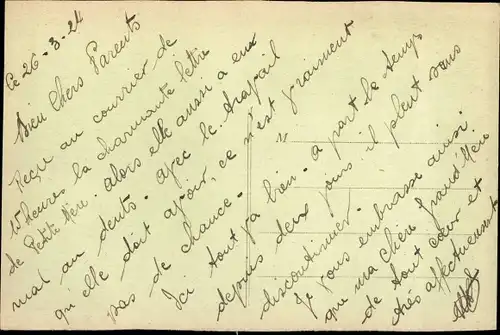 Le 26-3-24
Bien Chers Parents
Reçu au courrier de
11 heures la charmante lettre
de Petite Mère. Alors elle aussi a eu
mal au dents. avec le travail
qu elle doit avoir, ce n'est vraiment
pas de chance.
Ici tout va bien. à part le temps
depuis deux jours il pleut sans
discontinuer.
Je vous embrasse ainsi
que ma chère Grand'Mère
de tout cœur et
très affectueusement